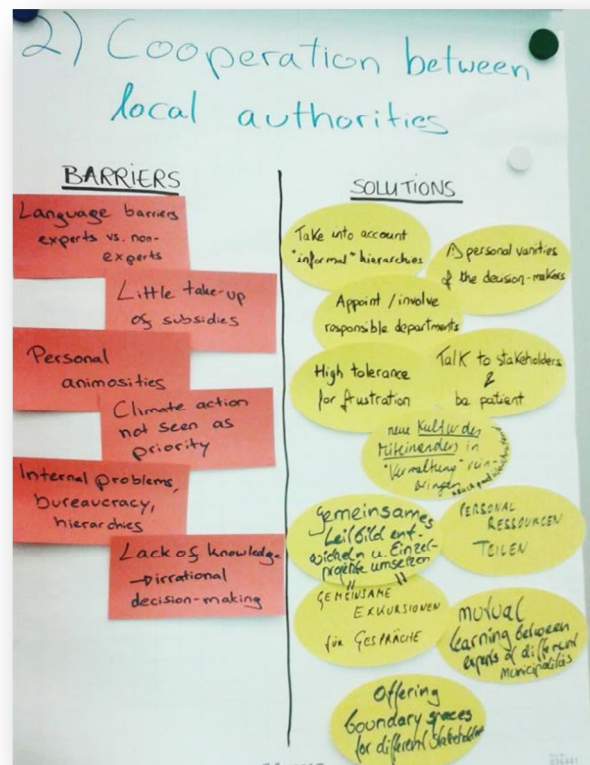 2) Cooperation between
local authorities
BARRIERS
Language barriers
experts vs. non-
experts
Little take-up
of subsidies
Personal
animosities
Climate action
not seen as
priority
Internal problems,
bureaucracy,
hierarchies
Lack of knowledge
→ irrational
decision-making
SOLUTIONS
Take into account
"informal" hierarchies
personal vanities
of the decision-makers
Appoint / involve
responsible departments
High tolerance
for frustration
Talk to stakeholders
&
be patient
neue Kultur des
Miteinanders in
"Verwaltung" rein-
bringen
gemeinsames
Leitbild ent-
wickeln u. Einzel-
projekte umsetzen
PERSONAL
RESSOURCEN
TEILEN
GEMEINSAME
EXKURSIONEN
für GESPRÄCHE
mutual
learning between
experts of different
municipalities
Offering
boundary spaces
for different stakeholders